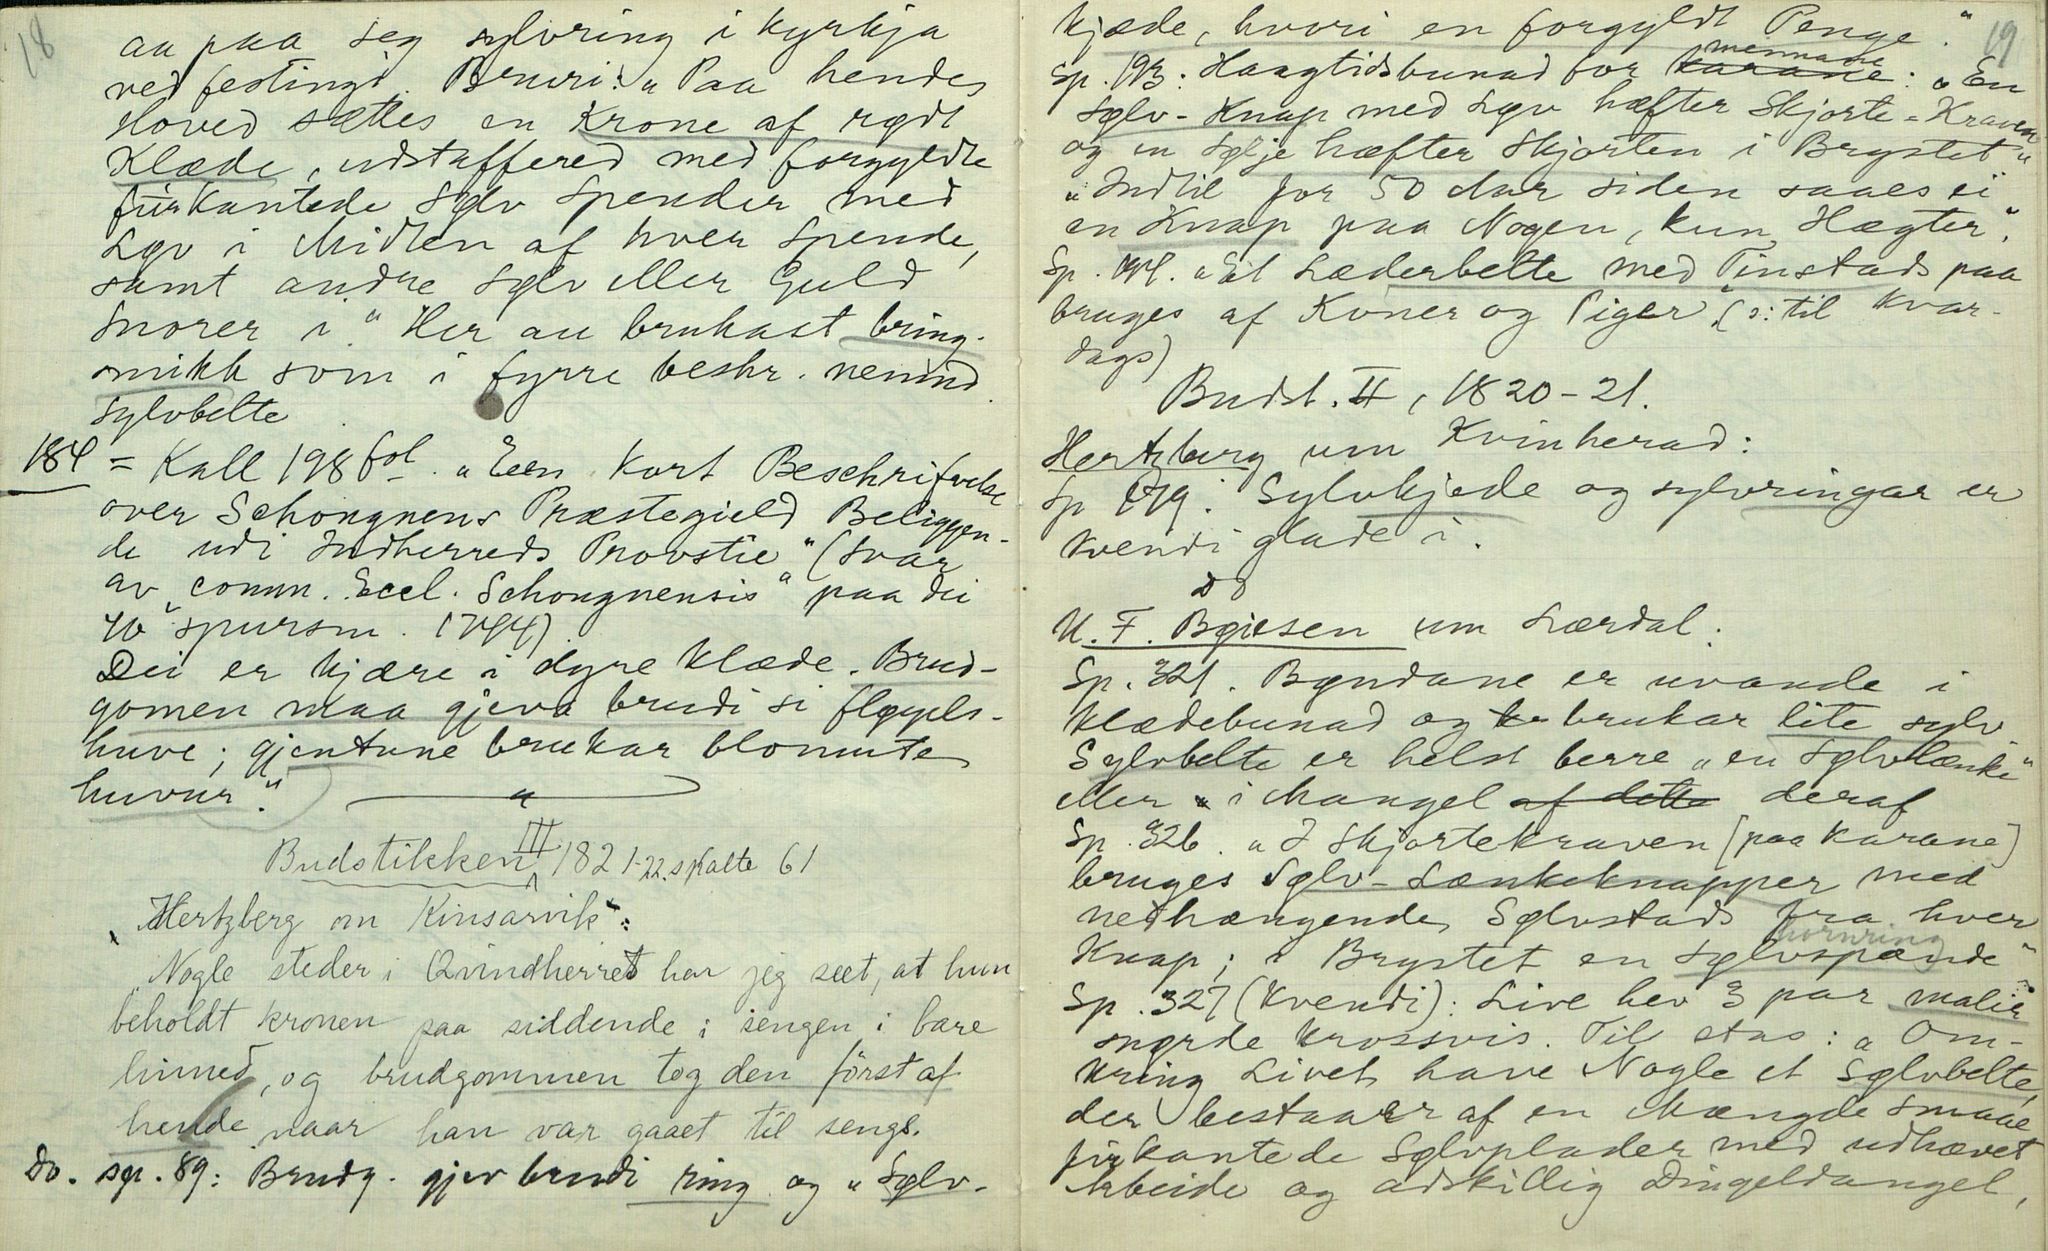 18
au paa seg sylvring i kyrkja
ved festingi. Bruri: „Paa hendes
Hoved sættes en Krone af rødt
Klæde, udstaffered med forgyldte
fiirkantede Sølv Spender med
Løv i Midten af hver Spende,
samt andre Sølv eller Guld
Snorer i." Her au brukast bring-
smikk som i fyrre beskr. nemnd
sylvbelte
184 = Kall 198 fol. „Een kort Beschrifvelse
over Schongnens Præstegield Beliggen-
de udi Indherreds Provstie" (svar
av „comm. Eccl. Schongnensis" paa dei
40 spursm. 1744)
Dei er kjære i dyre klæde. Brud-
gomen maa gjeva brudi si fløyels-
huve; gjentune brukar blomute
huvur."
Budstikken III 1821-22. spalte 61
„Hertzberg om Kinsarvik":
„Nogle steder i Qvindherret har jeg seet, at hun
beholdt kronen paa siddende i sengen i bare
linned, og brudgommen tog den först af
hende naar han var gaaet til sengs.
Do. sp. 89: Brudg. gjev brudi ring og „Sølv-
19
kjæde, hvori en forgyldt Penge."
Sp. 193: Høgtidsbunad for karane mennane: „En
Sølv-Knap med Løv hæfter Skjorte-Kraven
og en Sølje hæfter Skjorten i Brystet"
„Indtil for 50 Aar siden saaes ei
en Knap paa Nogen, kun Hægter".
Sp. 194. „Et Læderbelte med Tinstads paa
bruges af Koner og Piger" (ɔ: til kvar-
dags)
Budst. II, 1820-21.
Hertzberg um Kvinherad:
Sp 179: Sylvkjede og sylvringar er
kvendi glade i.
Do
U. F. Bøiesen um Lærdal.
Sp. 321. Bøndane er uvande i
klædebunad og br brukar lite sylv.
Sylvbelte er helst berre „en Sølvlænke"
eller i Mangel af dette deraf
Sp. 326. „I Skjortekraven [paa karane]
bruges Sølv-Lænkeknapper med
nedhængende Sølvstads fra hver
Knap; i Brystet en Sølvspænde"
hornring
Sp. 327 (kvendi): Live hev 3 par malier
snørde krossvis. Til stas: „Om-
kring Livet have Nogle et Sølvbelte,
der bestaaer af en Mængde smaae
firkantede Sølvplader med udhævet
Arbeide og adskillig Dingeldangel,